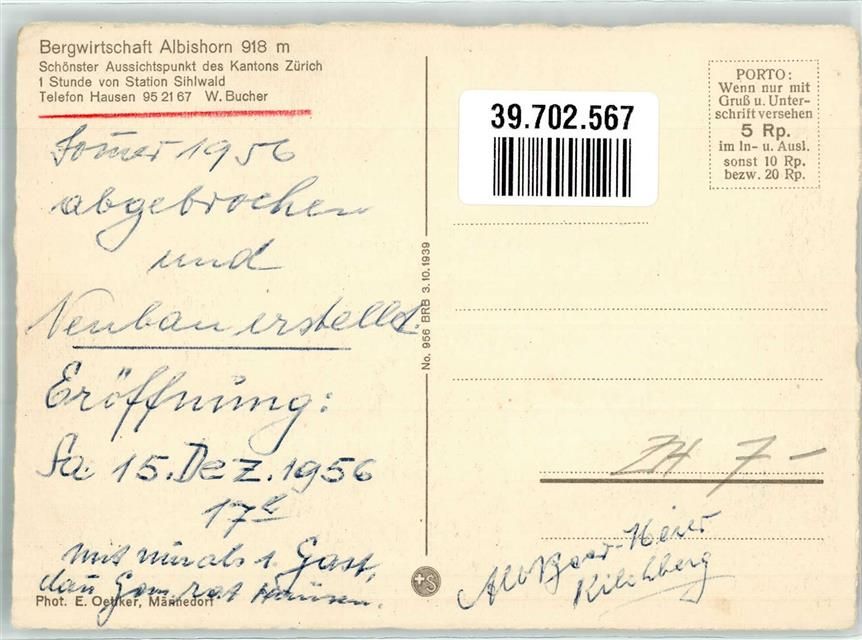 Bergwirtschaft Albishorn 918 m
Schönster Aussichtspunkt des Kantons Zürich
1 Stunde von Station Sihlwald
Telefon Hausen 95 21 67 W. Bucher
Somer 1956
abgebrochen
und
Neubau erstellt.
Eröffnung:
Sa. 15. Dez. 1956
17
mit mir als 1. Gast,
dan Gem. rat Hausen.
Phot. E. Oetiker, Männedorf
No. 956 BRB 3.10.1939
39.702.567
PORTO:
Wenn nur mit
Gruß u. Unter-
schrift versehen
5 Rp.
im In- u. Ausl.
sonst 10 Rp.
bezw. 20 Rp.
ZH 7-
Alb. Baer-Meier
Kilchberg